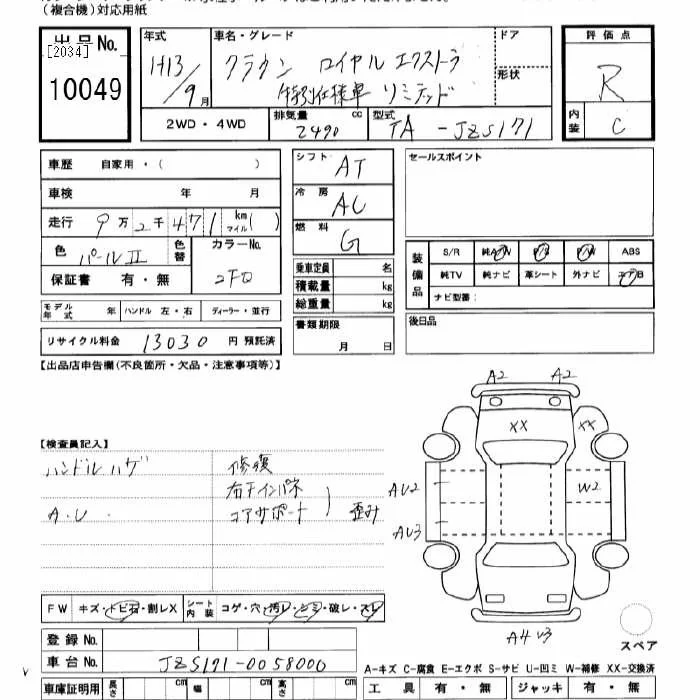 （複合機）対応用紙
出品No.
[2034]
10049
年式
H13/9月
車名・グレード
クラウン ロイヤル エクストラ
特別仕様車 リミテッド
ドア
形状
2WD・4WD
排気量 cc
2490
型式
TA-JZS171
評価点
R
内装
C
車歴 自家用・（ ）
車検 年 月
走行 9万2千471 km マイル( )
色 パールII
色替
カラーNo.
2F0
保証書 有・無
モデル年式 年
ハンドル 左・右
ディーラー・並行
リサイクル料金 13030 円 預託済
シフト AT
冷房 AC
燃料 G
乗車定員 名
積載量 kg
総重量 kg
書類期限
月 日
セールスポイント
装備品
S/R 純AW P/S P/W ABS
純TV 純ナビ 革シート 外ナビ エアB
ナビ型番：
後日品
【出品店申告欄(不良箇所・欠品・注意事項等)】
【検査員記入】
ハンドルハゲ
A.U
修復
右Fインパネ
コアサポート
歪み
A2 A2
XX XX
AU2
W2
AU3
A4 U3
スペア
FW キズ・トビ石・割レX
シート内装 コゲ・穴・汚レ・シミ・破レ・スレ
登録No.
車台No. JZS171-0058000
車庫証明用 長さ cm 幅 cm 高さ cm
A-キズ C-腐食 E-エクボ S-サビ U-凹ミ W-補修 XX-交換済
工具 有・無 ジャッキ 有・無